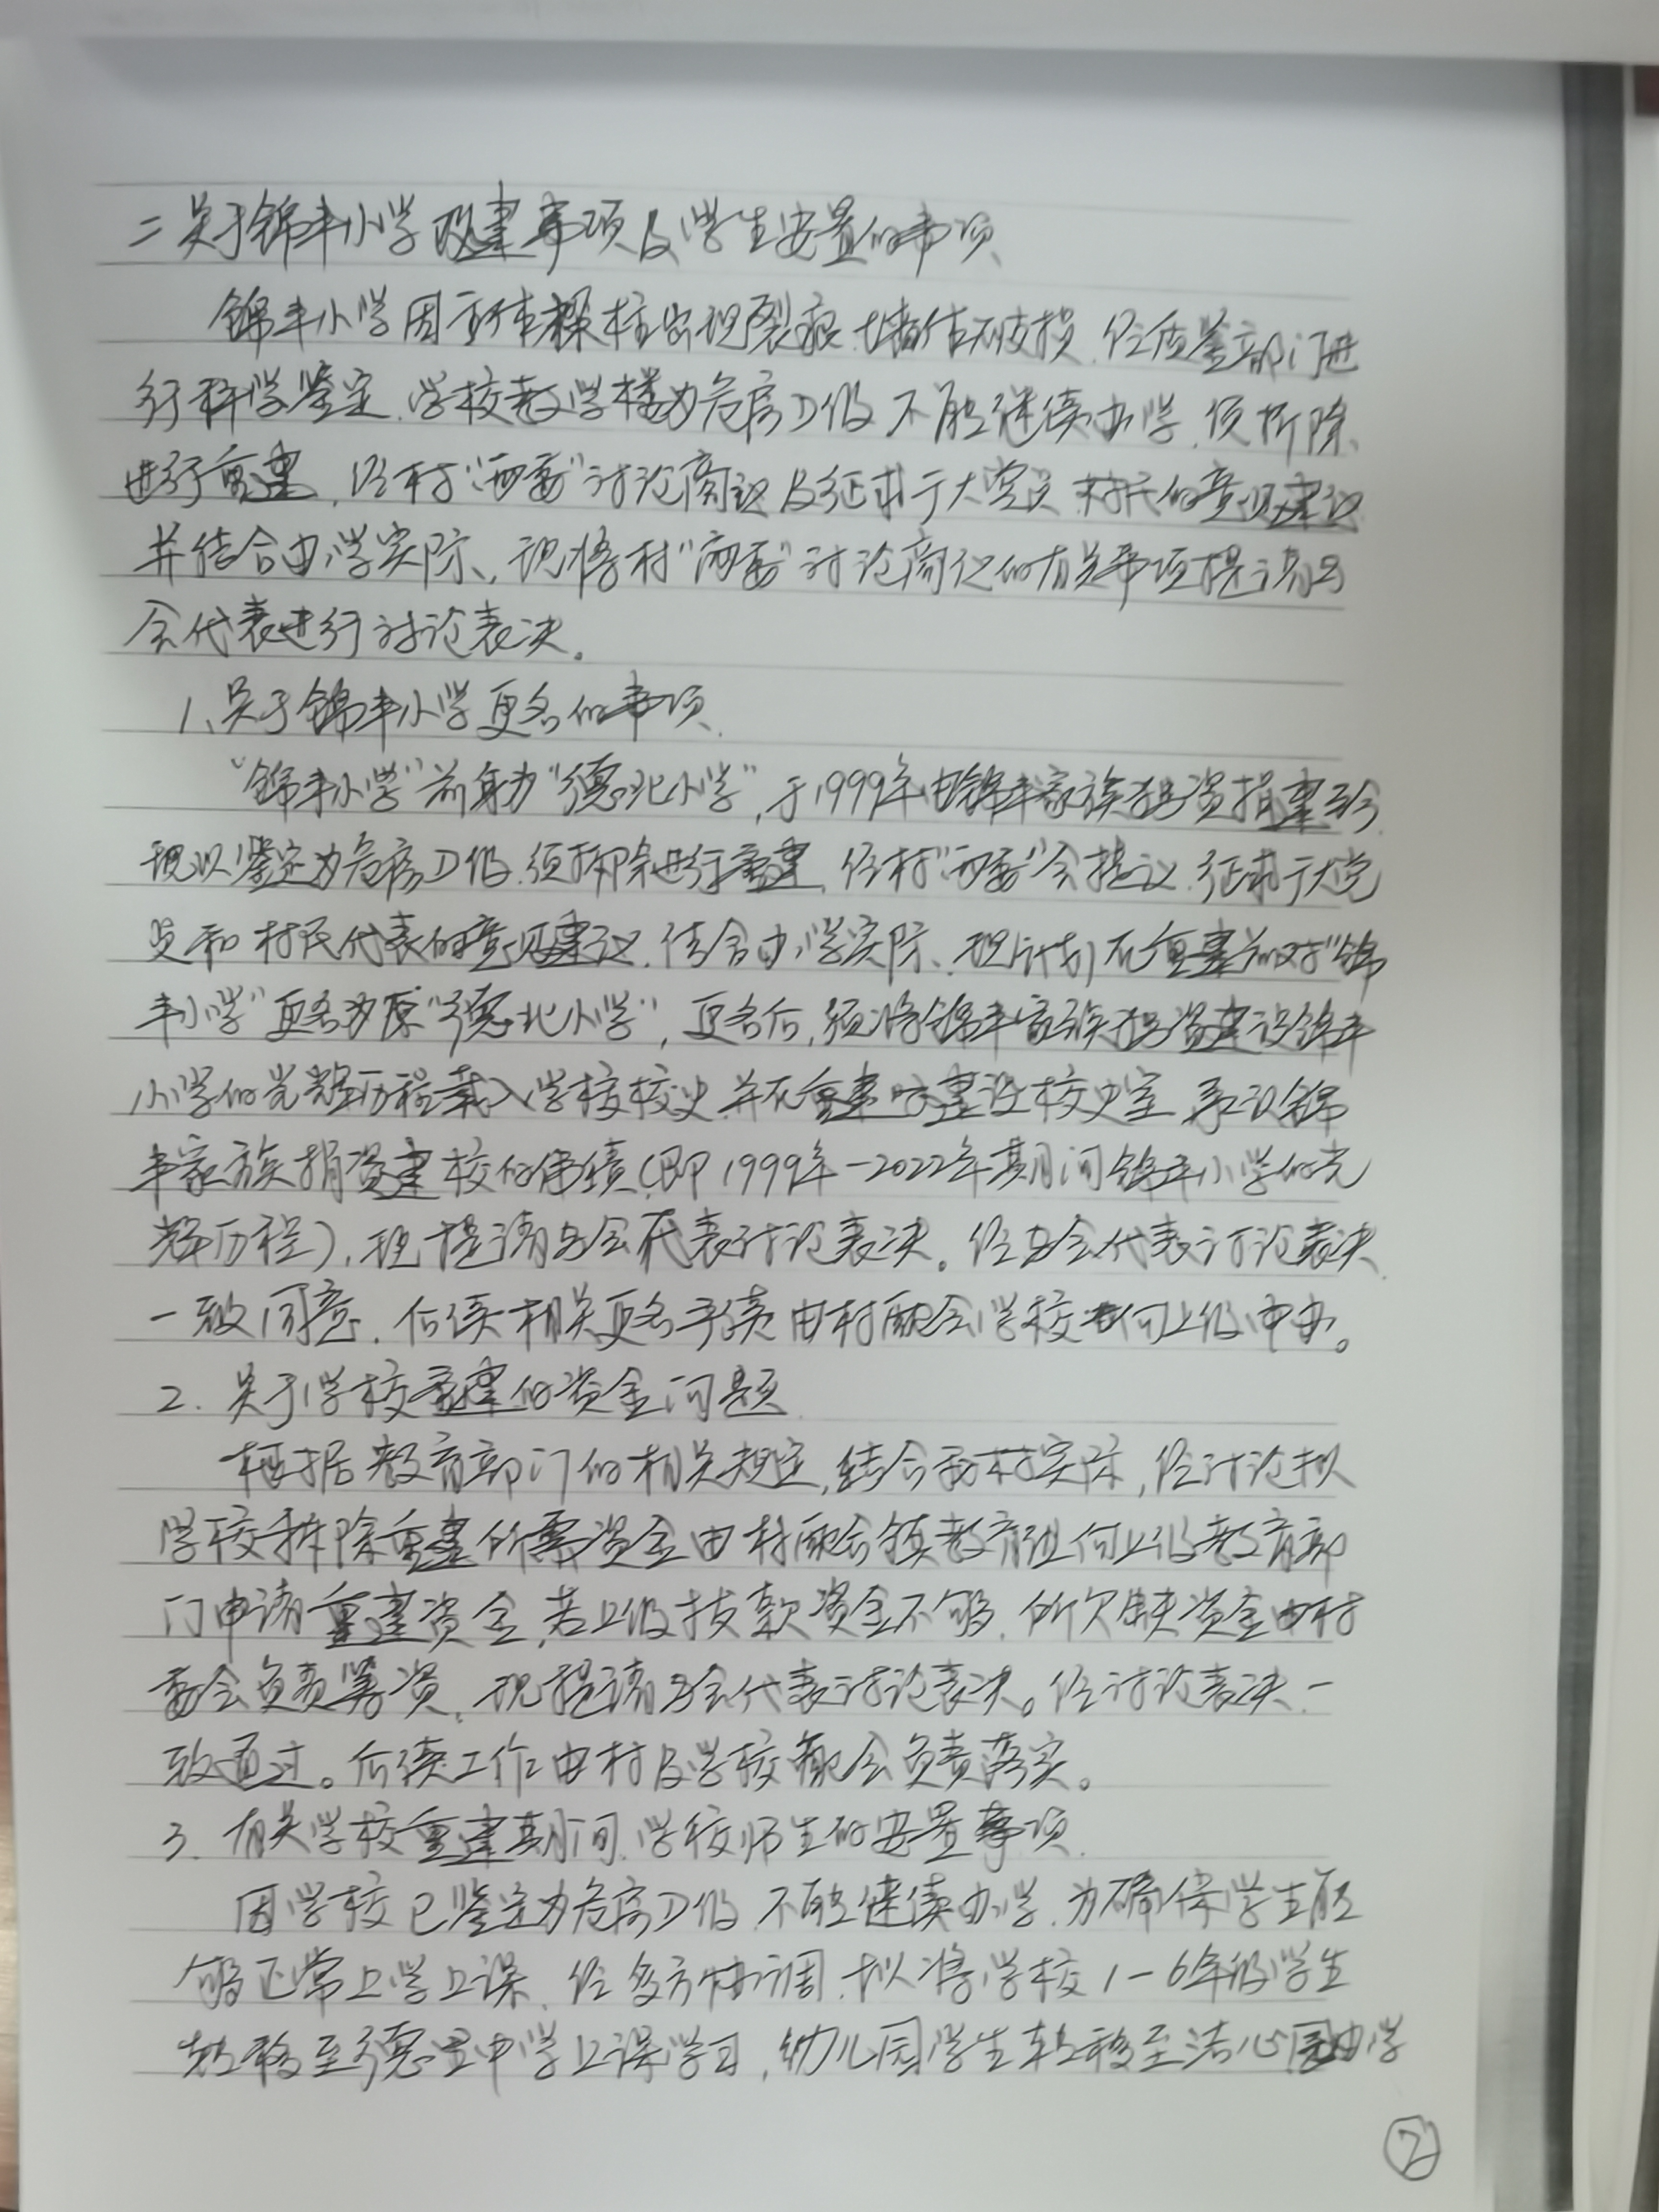 二关于锦丰小学改建事项及学生安置的事项
锦丰小学因主体梁柱出现裂痕、墙体破损，经质鉴部门进
行科学鉴定，学校教学楼为危房D级不能继续办学，须拆除
进行重建，经村“两委”讨论商议及征求于大党员、村民的意见建议
并结合办学实际，现将村“两委”讨论商议的有关事项提请与
会代表进行讨论表决。
1、关于锦丰小学更名的事项
“锦丰小学”前身为“德北小学”，于1999年由锦丰家族捐资捐建至今
现以鉴定为危房D级，须拆除进行重建，经村“两委”会提议，征求于大党
员和村民代表的意见建议，结合办学实际，现计划在重建前对“锦
丰小学”更名为原“德北小学”，更名后，须将锦丰家族捐资建设锦丰
小学的光辉历程载入学校校史，并在重建时建设校史室，锦
丰家族捐资建校的伟绩（即1999年-2022年期间锦丰小学的光
辉历程），现提请与会代表讨论表决。经与会代表讨论表决，
一致同意，后续相关更名手续由村配合学校向上级申办。
2．关于学校重建的资金问题
根据教育部门的相关规定，结合我村实际，经讨论拟
学校拆除重建所需资金由村配合镇教育组向上级教育部
门申请重建资金，若上级拨款资金不够，所欠缺资金由村
委会负责筹资，现提请与会代表讨论表决。经讨论表决一
致通过。后续工作由村及学校配合负责落实。
3．有关学校重建期间，学校师生的安置事项
因学校已鉴定为危房D级，不能继续办学，为确保学生能
够正常上学上课，经多方协调，拟将学校1-6年级学生
转移至德里中学上课学习，幼儿园学生转移至洁心园办学
②